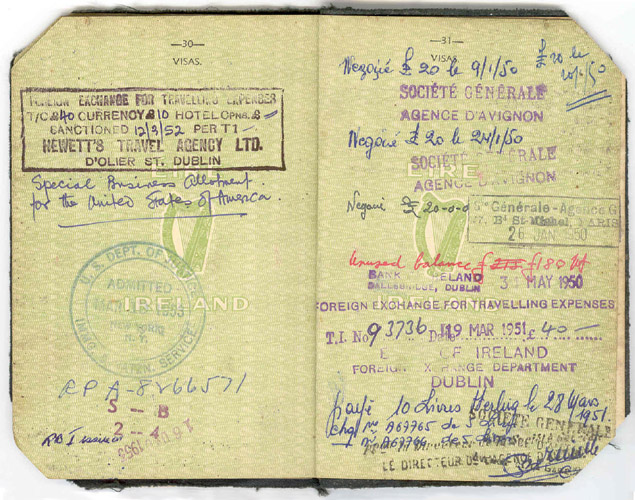 —30—
VISAS.
FOREIGN EXCHANGE FOR TRAVELLING EXPENSES
T/C £40 CURRENCY £10 HOTEL CPNS. £ —
SANCTIONED 12/3/52 PER T1 —
HEWETT'S TRAVEL AGENCY LTD.
D'OLIER ST. DUBLIN
Special Business Allotment
for the United States of America.
EIRE
IRELAND
U. S. DEPT. OF
ADMITTED
NEW YORK,
N. Y.
IMMIG. SERVICE
RPA-8266571
S — B
2 — 4
1953
—31—
VISAS.
Negocié £ 20 le 9/1/50
£ 20 le
SOCIÉTÉ GÉNÉRALE
AGENCE D'AVIGNON
Negocié £ 20 le 24/1/50
EIRE
SOCIÉTÉ GÉNÉRALE
AGENCE D'AVIGNON
£ 20-0-0
Générale-Agence G
Bd St PARIS
26 JAN 50
Unused balance £180
BANK IRELAND
DUBLIN
3 MAY 1950
IRELAND
FOREIGN EXCHANGE FOR TRAVELLING EXPENSES
T.I. No 93736 Date 19 MAR 1951 £ 40 —
OF IRELAND
FOREIGN EXCHANGE DEPARTMENT
DUBLIN
payé 10 Livres Sterling le 28 Mars
1951
SOCIÉTÉ GÉNÉRALE
A69765 de 5
de 5
LE DIRECTEUR DE L'AGENCE